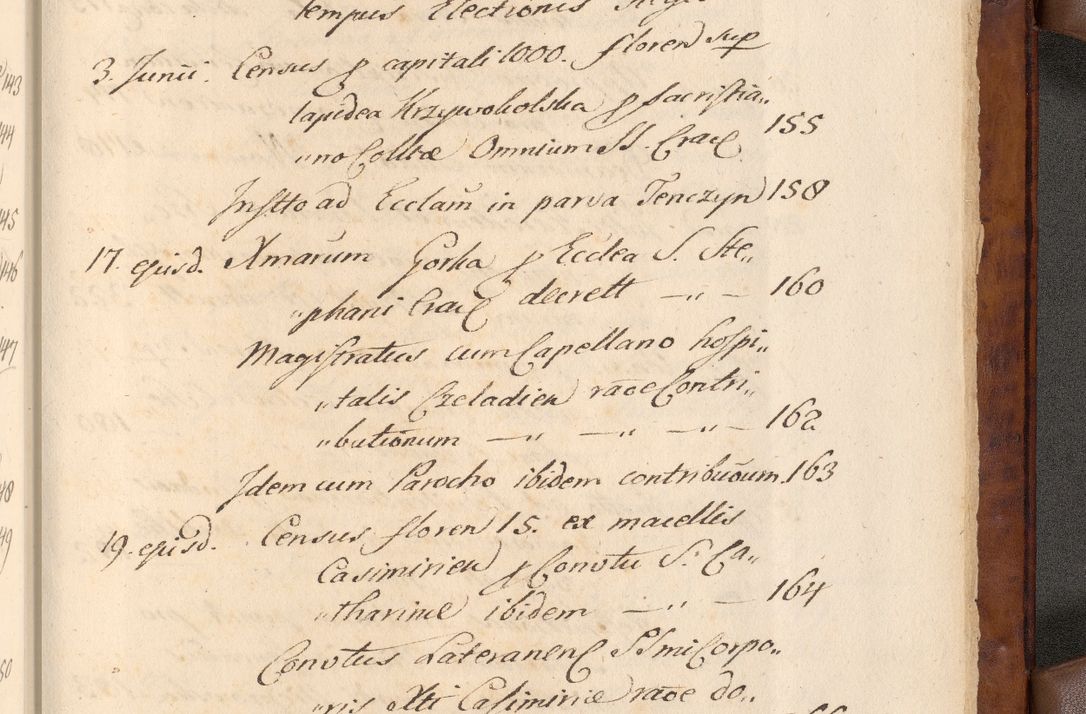 tempus Electionis
3. Junii. Census p capitali 1000. floren sup
lapidea Krzywokolska p sacristia„
„no Colltæ Omnium SS. Crac 155
Instto ad Ecclam in parva Tenczyn 158
17. ejusd. Xmarum Gorka p Ecclea S. Ste„
„phani Crac decrett — „ — 160
Magistratus cum Capellano hospi„
„talis Czeladien raoe Contri„
„butionum — „ — „ — „ — 162
Idem cum Parocho ibidem contribuoum. 163
19. ejusd. Census floren 15. ex macellis
Casimirien p Convtu S. Ca„
„tharinæ ibidem — „ — 164
Convtus Lateranen SSmi Corpo„
„ris Xti Casimiriæ raoe do„
143
144
145
146
147
48
49
50